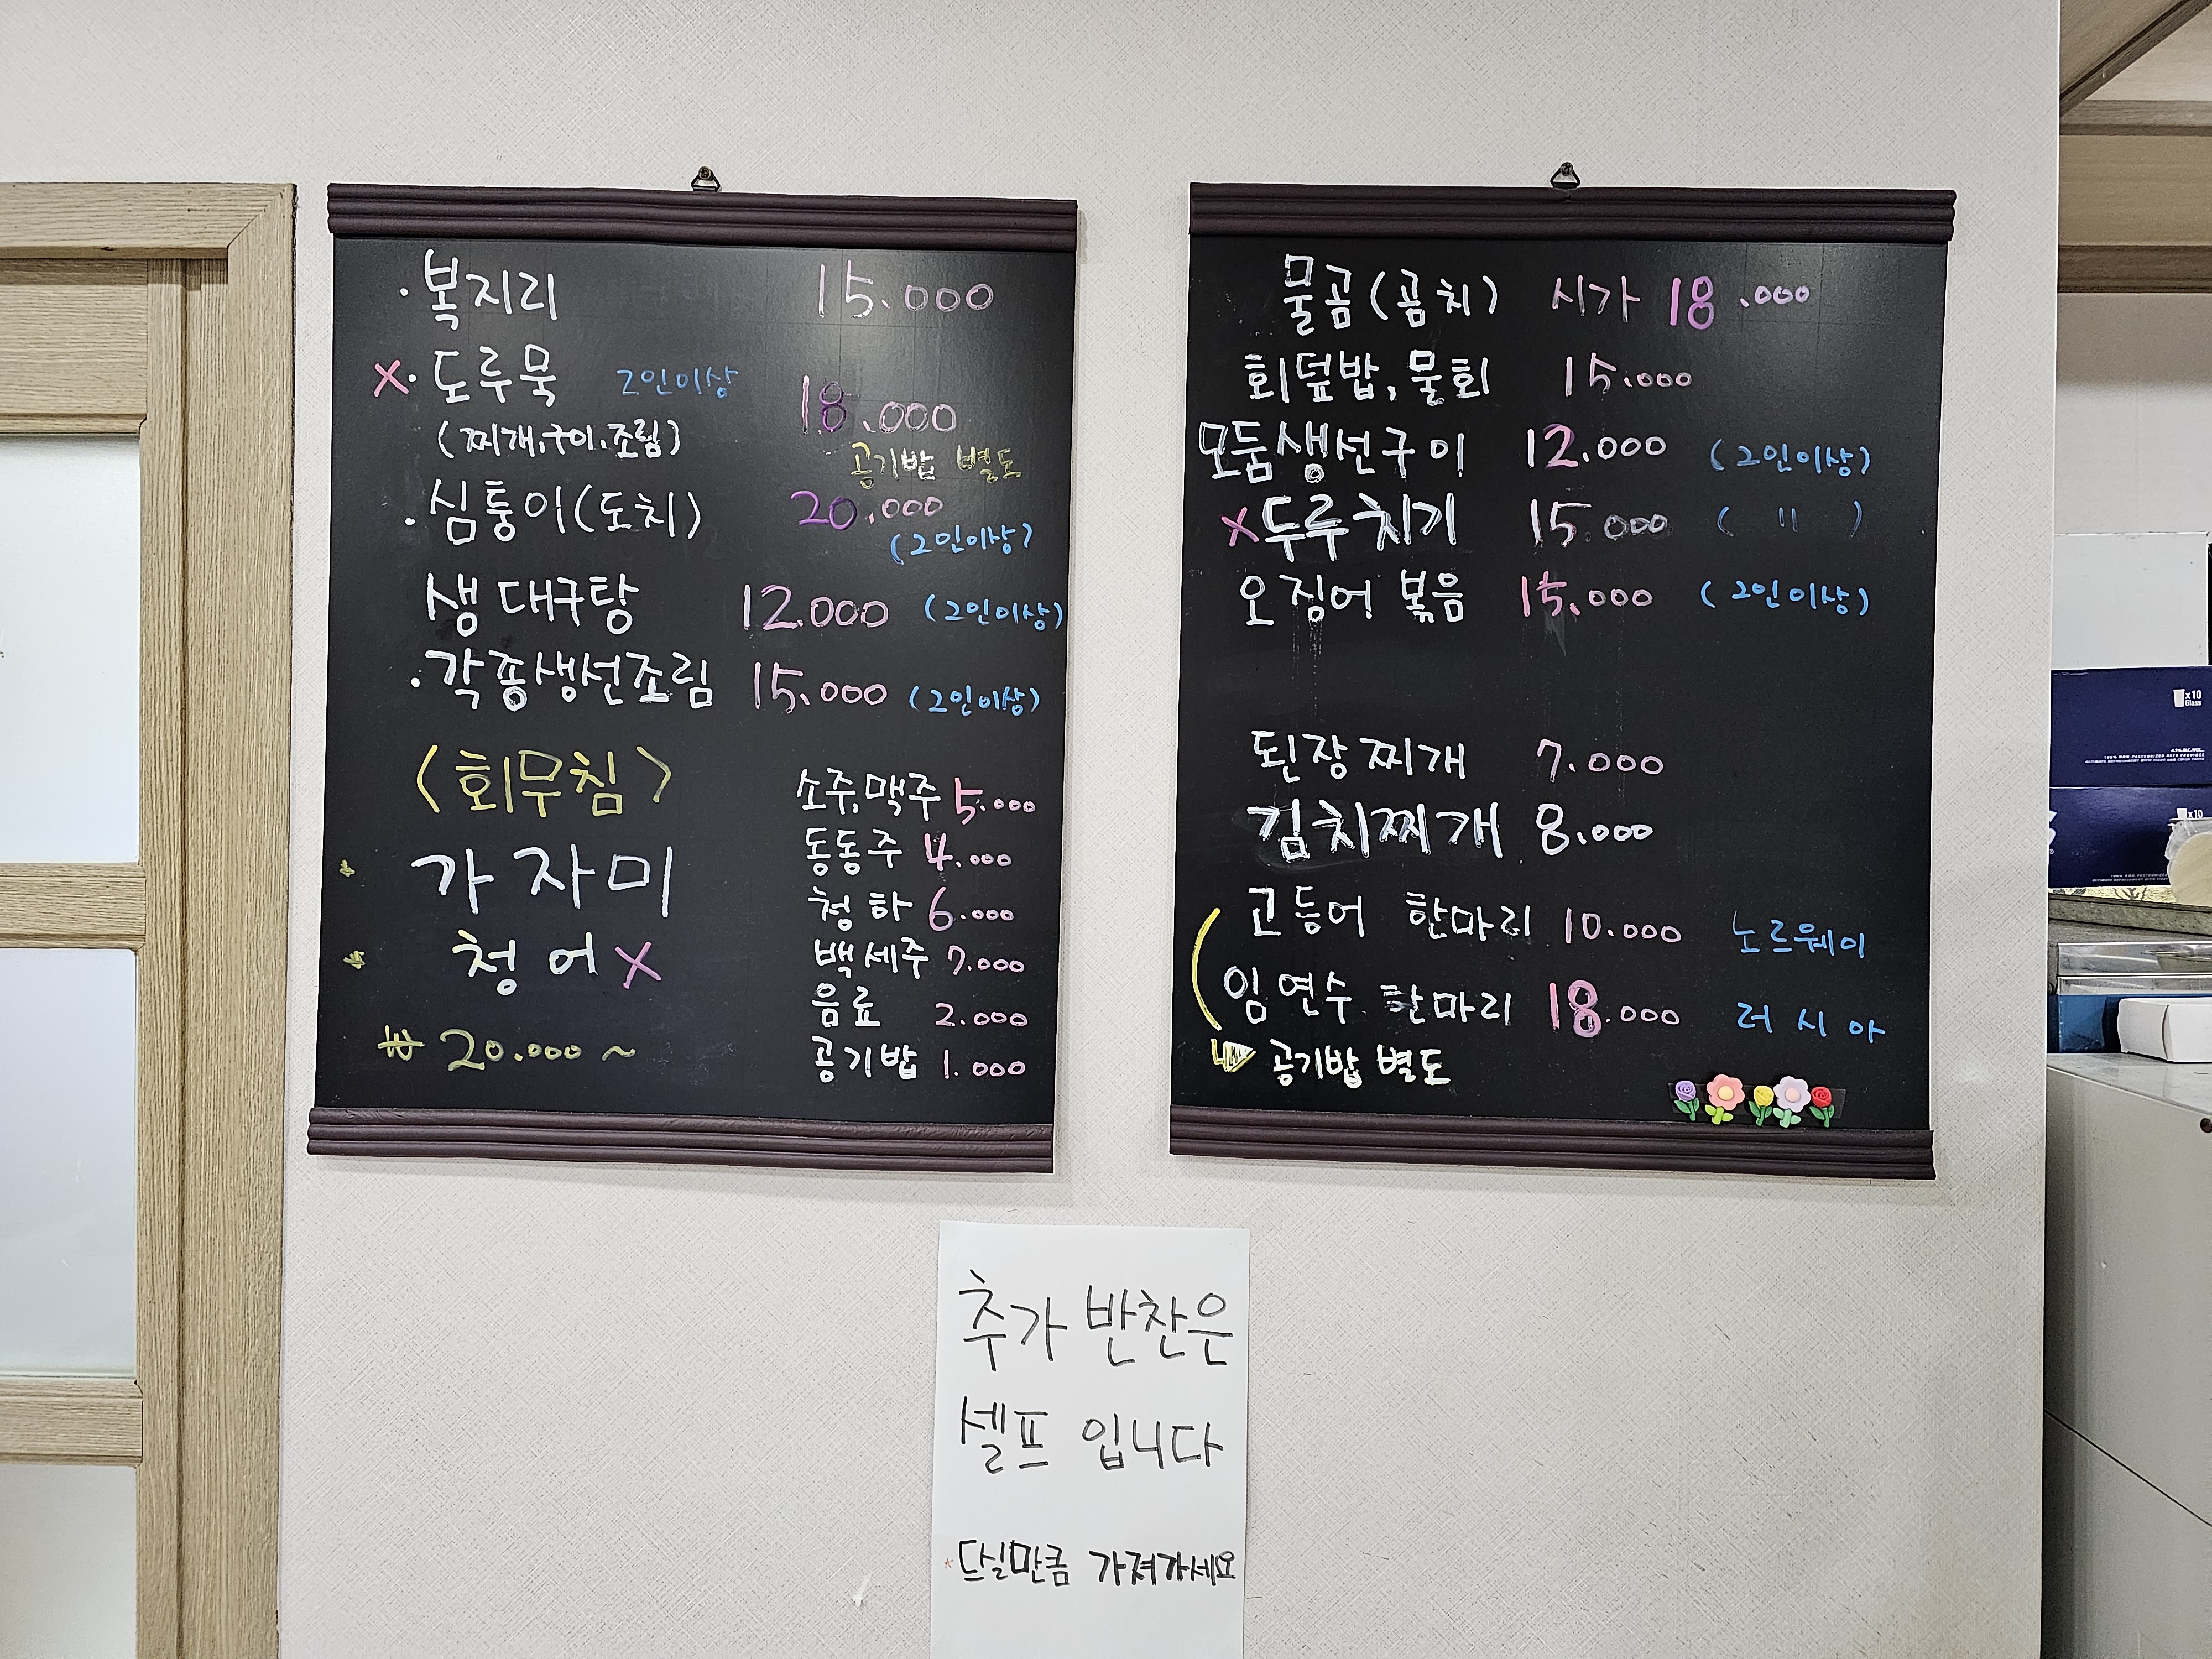 ·복지리 15.000
X·도루묵 2인이상 18.000
(찌개,구이,조림) 공기밥 별도
·심퉁이(도치) 20.000
(2인이상)
생대구탕 12.000 (2인이상)
·각종생선조림 15.000 (2인이상)
<회무침>
가자미
청어X
₩20.000~
소주,맥주 5.000
동동주 4.000
청하 6.000
백세주 7.000
음료 2.000
공기밥 1.000
물곰(곰치) 시가 18.000
회덮밥,물회 15.000
모둠생선구이 12.000 (2인이상)
X두루치기 15.000 ( " )
오징어 볶음 15.000 (2인이상)
된장찌개 7.000
김치찌개 8.000
고등어 한마리 10.000 노르웨이
임연수 한마리 18.000 러시아
공기밥 별도
추가 반찬은
셀프 입니다
*드실만큼 가져가세요
x10
Glass
x10